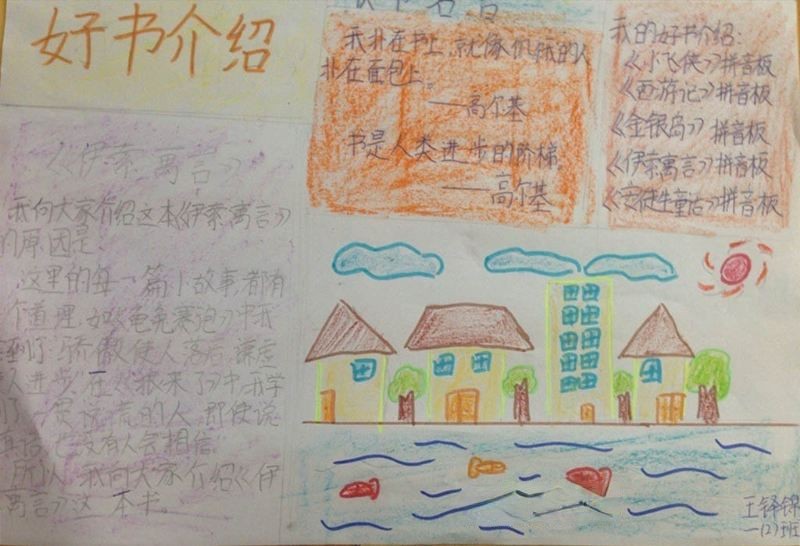 好书介绍
《伊索寓言》
我向大家介绍这本《伊索寓言》
的原因是
这里的每一篇小故事都有
个道理,如《龟兔赛跑》中我
到了:骄傲使人落后,谦虚
人进步。在《狼来了》中我学
说谎的人,即使说
真话,也没有人会相信。
所以,我向大家介绍《伊
寓言》这一本书。
名言
我扑在书上,就像饥饿的人
扑在面包上。
——高尔基
书是人类进步的阶梯
——高尔基
我的好书介绍:
《小飞侠》拼音板
《西游记》拼音板
《金银岛》拼音板
《伊索寓言》拼音板
《安徒生童话》拼音板
王铎锦
一(2)班